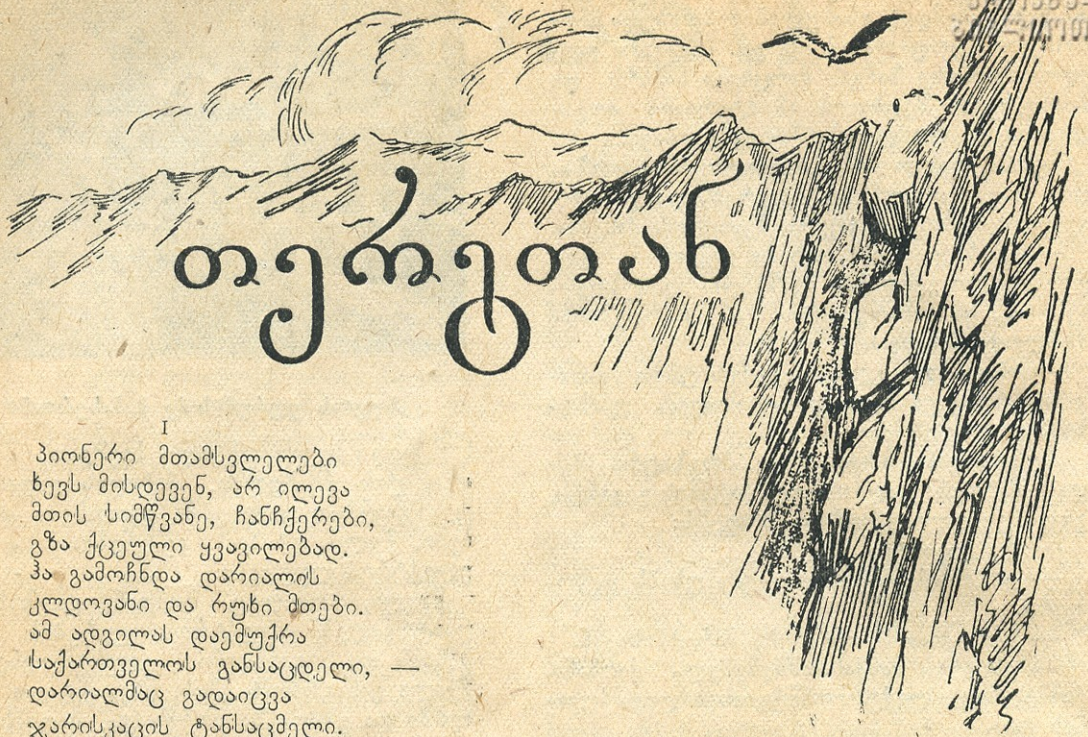 თერგთან
I
პიონერი მთამსვლელები
ხევს მისდევენ, არ ილევა
მთის სიმწვანე, ჩანჩქერები,
გზა ქცეული ყვავილებად.
ჰა გამოჩნდა დარიალის
კლდოვანი და რუხი მთები.
ამ ადგილას დაემუქრა
საქართველოს განსაცდელი, —
დარიალმაც გადაიცვა
ჯარისკაცის ტანსაცმელი.